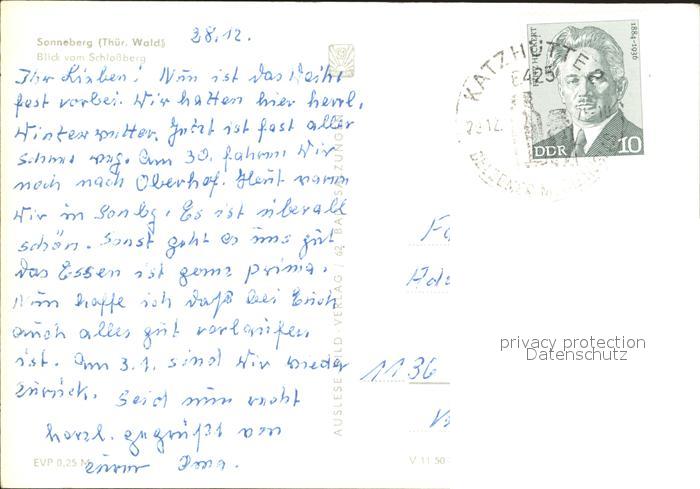 28.12.
Sonneberg (Thür. Wald)
Blick vom Schloßberg
Ihr Lieben! Nun ist das Weihn
fest vorbei. Wir hatten hier herrl.
Winterwetter. Jetzt ist fast aller
Schnee weg. Am 30. fahren wir
noch nach Oberhof. Heut waren
wir in Sonbg. Es ist überall
schön. Sonst geht es uns gut
das Essen ist ganz prima.
Nun hoffe ich daß bei Euch
auch alles gut verlaufen
ist. Am 3.1. sind wir wieder
zurück. Seid nun recht
herzl. gegrüßt von
Eurer Oma.
EVP 0,25 M
AUSLESE-BILD-VERLAG · 62 BAD SALZUNGEN
V 11 50
KATZHÜTTE 2
645
FRITZ HECKERT
1884-1936
DDR 10
1136
privacy protection
Datenschutz